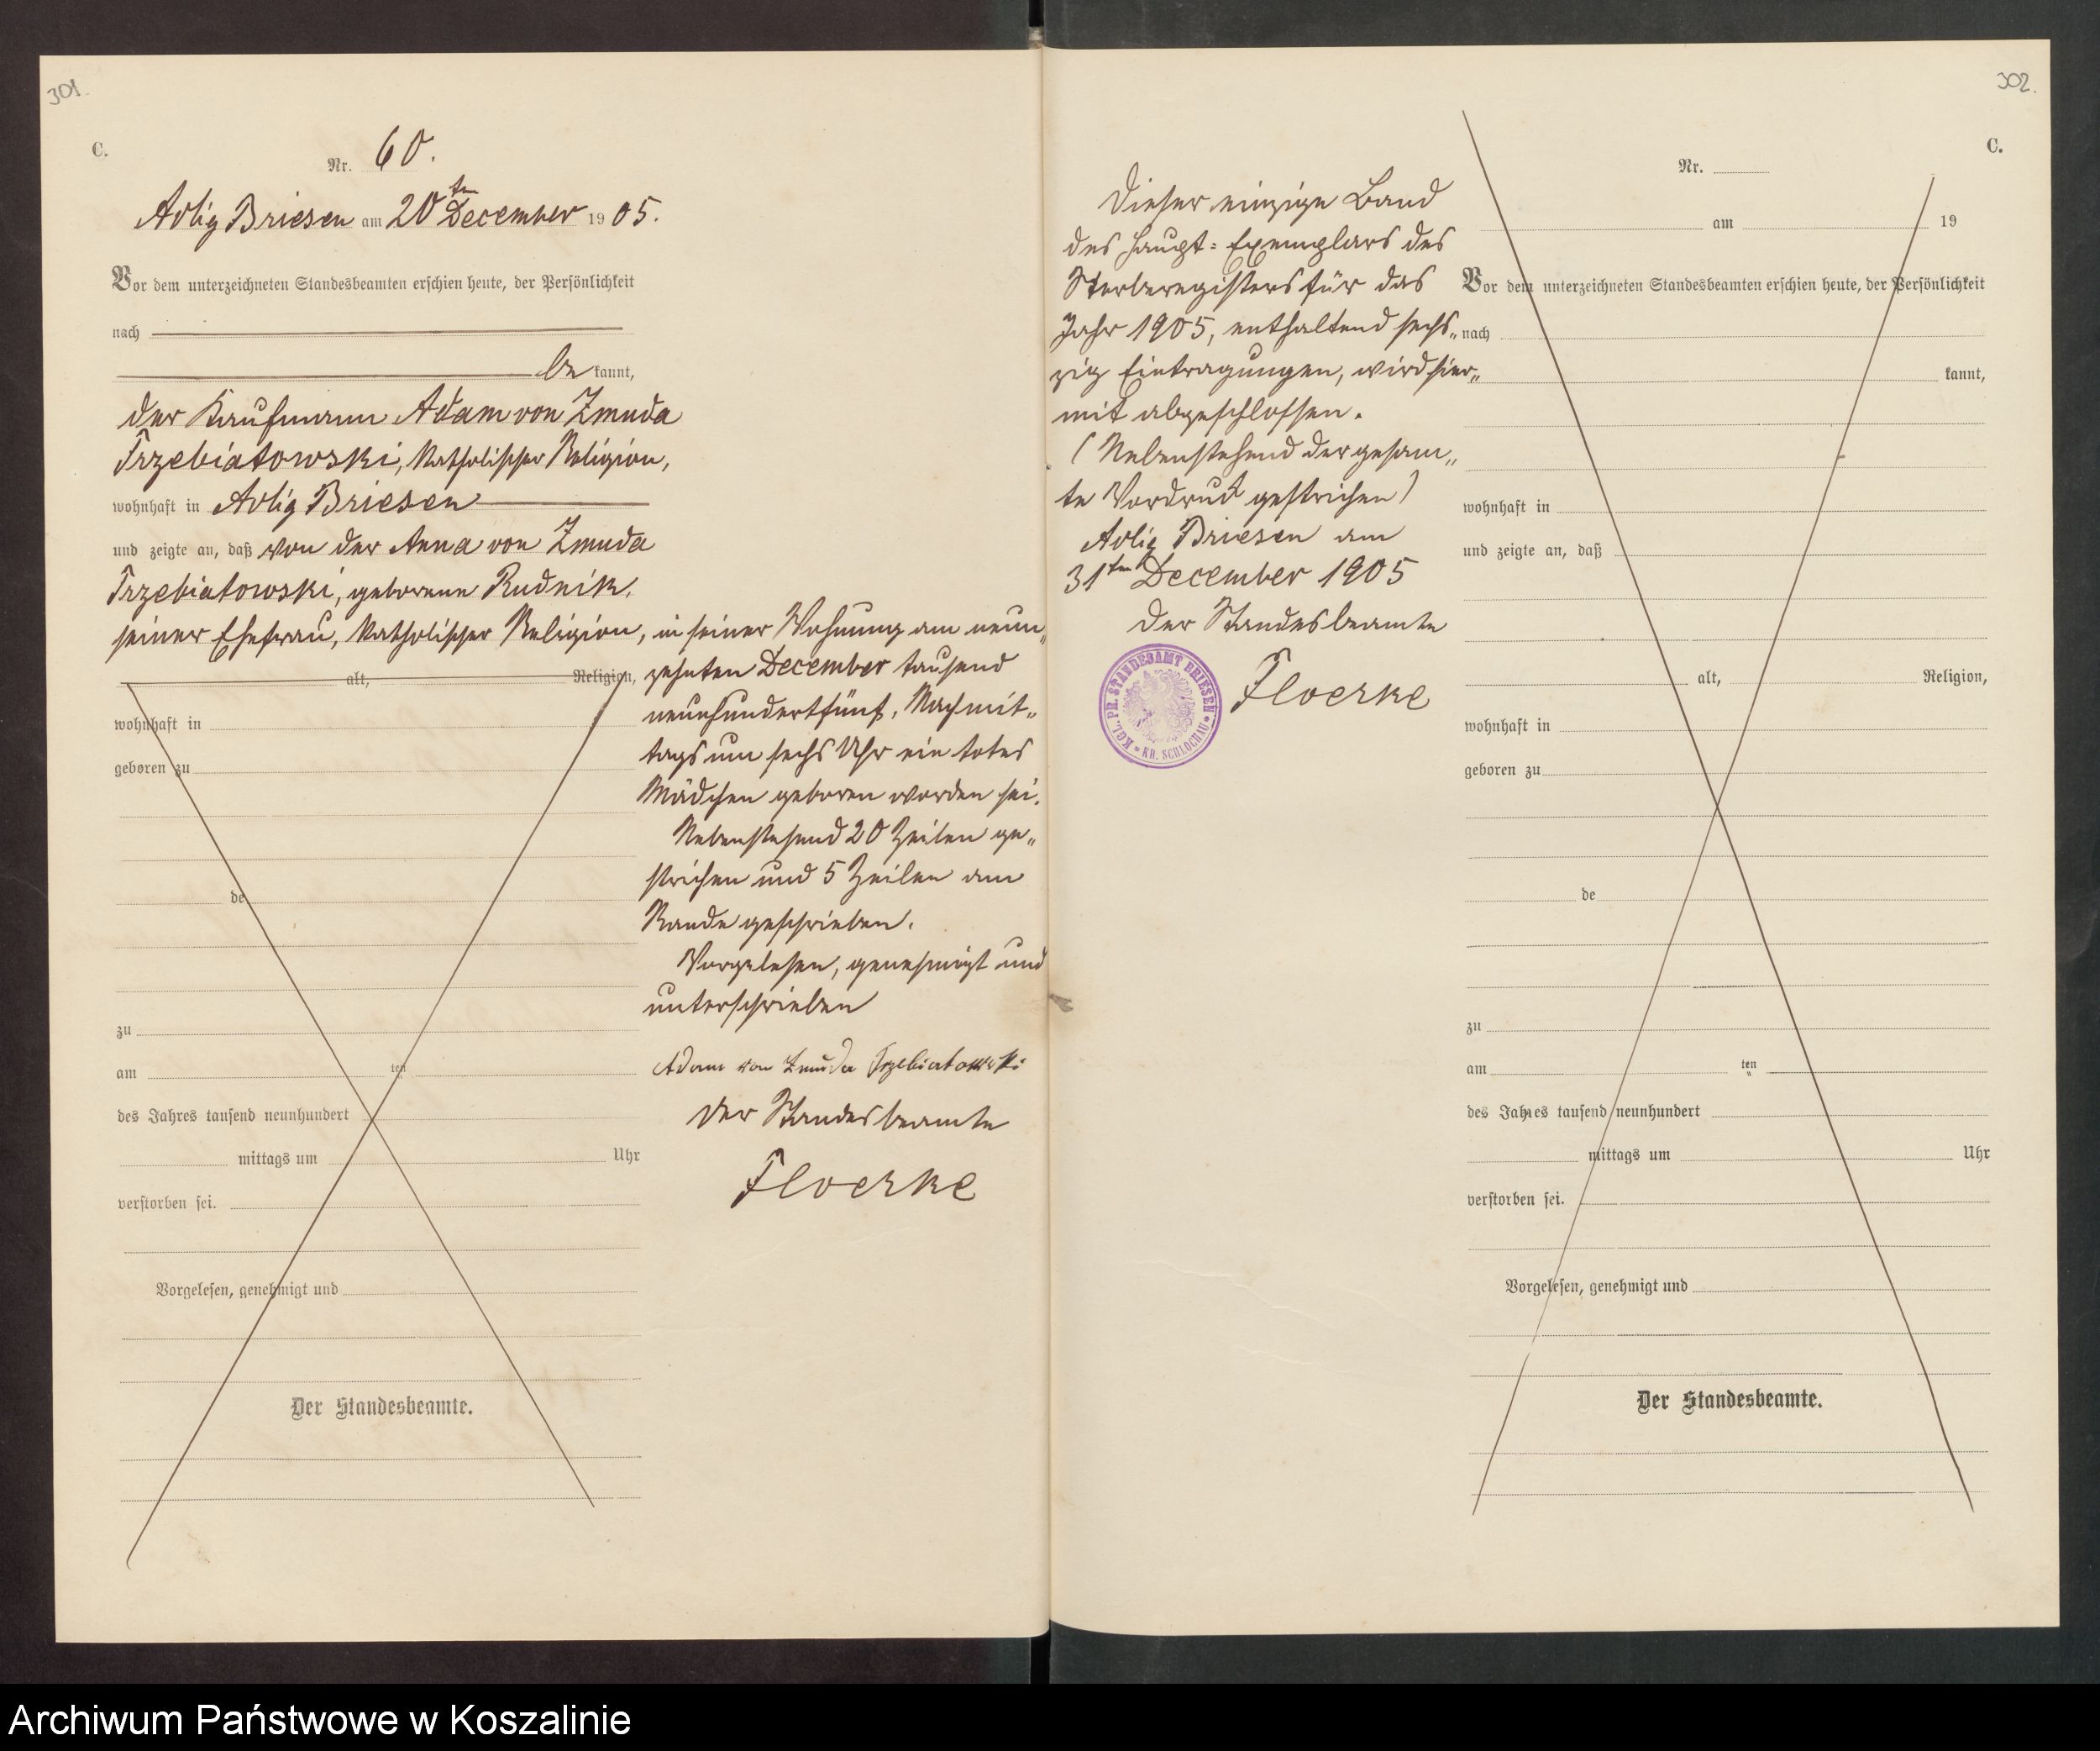 301.
C.
Nr. 60.
Adlig Briesen am 20ten December 1905.
Vor dem unterzeichneten Standesbeamten erschien heute, der Persönlichkeit
nach
be kannt,
der Kaufmann Adam von Zmuda
Trzebiatowski, katholischer Religion,
wohnhaft in Adlig Briesen
und zeigte an, daß von der Anna von Zmuda
Trzebiatowski, geborene Rudnik,
seiner Ehefrau, katholischer Religion, in seiner Wohnung am neun„
alt, Religion, zehnten December tausend
neunhundertfünf, Nachmit„
wohnhaft in
tags um sechs Uhr ein totes
geboren zu
Mädchen geboren worden sei.
Nebenstehend 20 Zeilen ge„
strichen und 5 Zeilen am
de
Rande geschrieben.
Vorgelesen, genehmigt und
unterschrieben
zu
am ten
Adam von Zmuda Trzebiatowski
des Jahres tausend neunhundert
Der Standesbeamte
mittags um Uhr
Floerke
verstorben sei.
Vorgelesen, genehmigt und
Der Standesbeamte.
302.
C.
Dieser einzige Band
des Haupt-Exemplars des
Sterberegisters für das
Jahr 1905, enthaltend sechs„
zig Eintragungen, wird hier„
mit abgeschlossen.
(Nebenstehend der gesam„
te Vordruck gestrichen)
Adlig Briesen am
31ten December 1905
Der Standesbeamte
Floerke
KGL. PR. STANDESAMT BRIESEN
KR. SCHLOCHAU
Nr.
am 19
Vor dem unterzeichneten Standesbeamten erschien heute, der Persönlichkeit
nach
kannt,
wohnhaft in
und zeigte an, daß
alt, Religion,
wohnhaft in
geboren zu
de
zu
am ten
des Jahres tausend neunhundert
mittags um Uhr
verstorben sei.
Vorgelesen, genehmigt und
Der Standesbeamte.
Archiwum Państwowe w Koszalinie